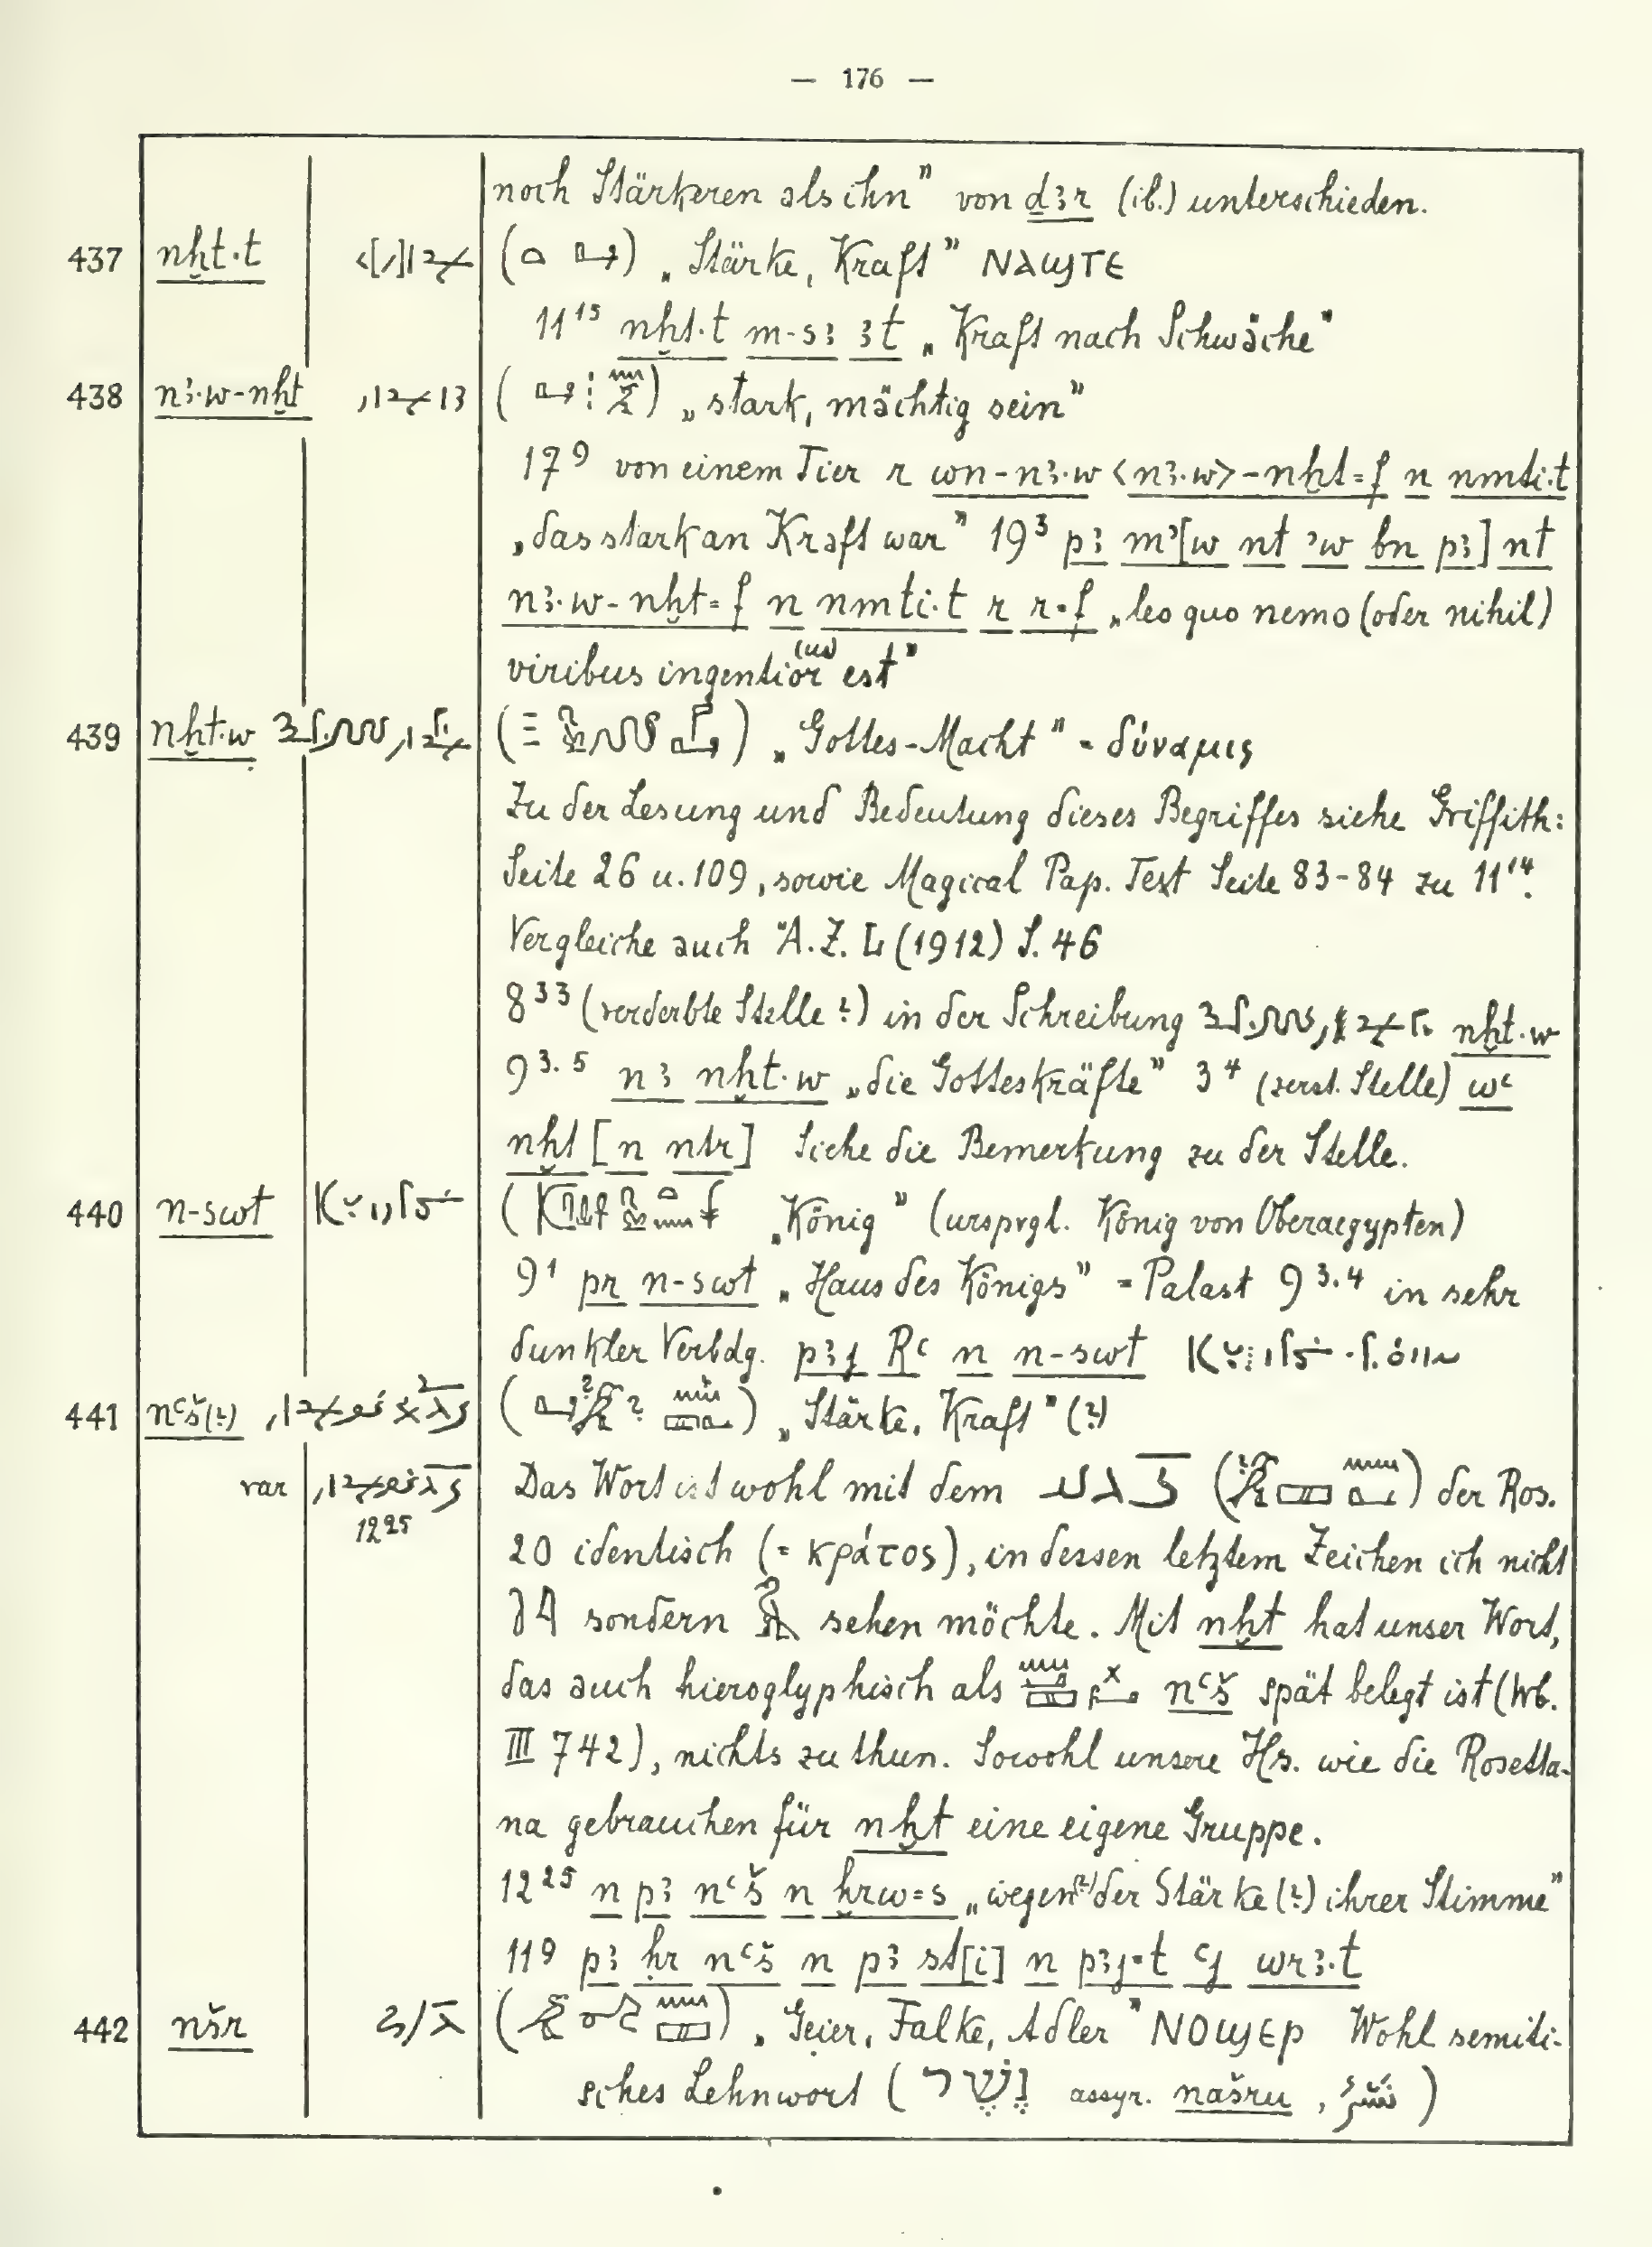 — 176 —
noch Stärkeren als ihn" von ḏꜣr (ib.) unterschieden.
437 nḫt·t ( ) „Stärke, Kraft" ⲚⲀϢⲦⲈ
11¹⁵ nḫt·t m-sꜣ ꜣt „Kraft nach Schwäche"
438 nꜣ·w-nḫt ( ) „stark, mächtig sein"
17⁹ von einem Tier r wn-nꜣ·w <nꜣ·w>-nḫt=f n nmti·t
„das stark an Kraft war" 19³ pꜣ mꜣ[w nt ꜣw bn pꜣ] nt
nꜣ·w-nḫt=f n nmti·t r r=f „leo quo nemo (oder nihil)
viribus ingentior (us) est"
439 nḫt·w ( ) „Gottes-Macht" = δύναμις
Zu der Lesung und Bedeutung dieses Begriffes siehe Griffith:
Seite 26 u. 109, sowie Magical Pap. Text Seite 83-84 zu 11¹⁴.
Vergleiche auch Ä.Z. L (1912) S. 46
8³³ (verderbte Stelle?) in der Schreibung nḫt·w
9³·⁵ nꜣ nḫt·w „die Gotteskräfte" 3⁴ (zerst. Stelle) wꜥ
nḫt [n ntr] Siehe die Bemerkung zu der Stelle.
440 n-swt ( „König" (ursprgl. König von Oberaegypten)
9¹ pr n-swt „Haus des Königs" = Palast 9³·⁴ in sehr
dunkler Verbdg. pꜣj Rꜥ n n-swt
441 nꜥš(?) ( ) „Stärke, Kraft" (?)
var 12²⁵ Das Wort ist wohl mit dem ( ) der Ros.
20 identisch (= κράτος), in dessen letztem Zeichen ich nicht
sondern sehen möchte. Mit nḫt hat unser Wort,
das auch hieroglyphisch als nꜥš spät belegt ist (Wb.
III 742), nichts zu thun. Sowohl unsere Hs. wie die Rosetta-
na gebrauchen für nḫt eine eigene Gruppe.
12²⁵ n pꜣ nꜥš n ḫrw=s „wegen(?) der Stärke (?) ihrer Stimme"
11⁹ pꜣ ḥr nꜥš n pꜣ st[i] n pꜣj=t ꜥj wrꜣ·t
442 nšr ( ) „Geier, Falke, Adler" ⲚⲞϢⲈⲢ Wohl semiti-
sches Lehnwort (נֶשֶׁר assyr. našru, )